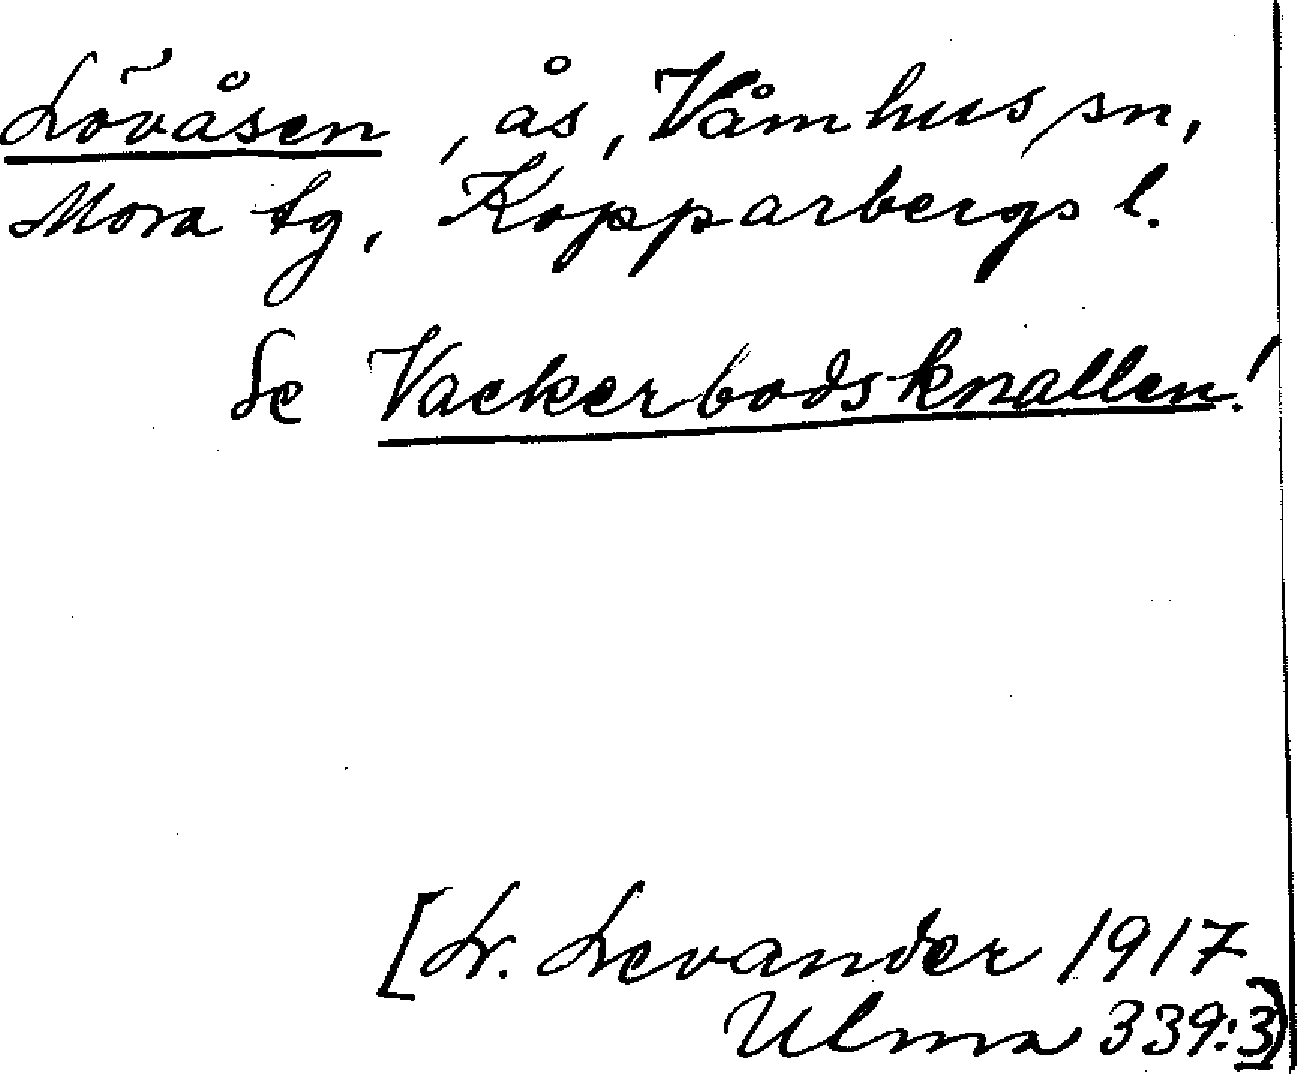 Lövåsen, ås, Våmhus sn,
Mora tg, Kopparbergs l.
Se Vackerbodsknallen!
[L. Levander 1917
Ulma 339:3]